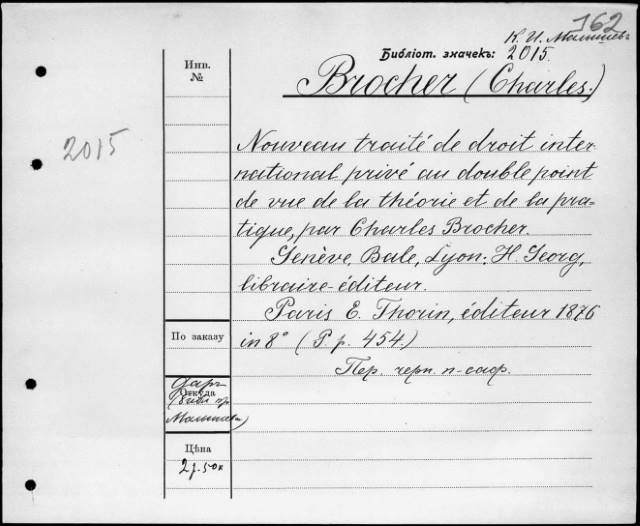 162
К. И. Малышевъ
Библіот. значекъ: 2015.
Инв.
№
Brocher (Charles.)
2015
Nouveau traité de droit inter-
national privé au double point
de vue de la théorie et de la pra-
tique, par Charles Brocher.
Genève, Bale, Lyon: H. Georg,
libraire-éditeur.
Paris E. Thorin, éditeur 1876
По заказу
in 8° (P. p. 454.)
Пер. черн. п-саф.
Даръ
Откуда
Малышева)
Цѣна
2 р. 50 к